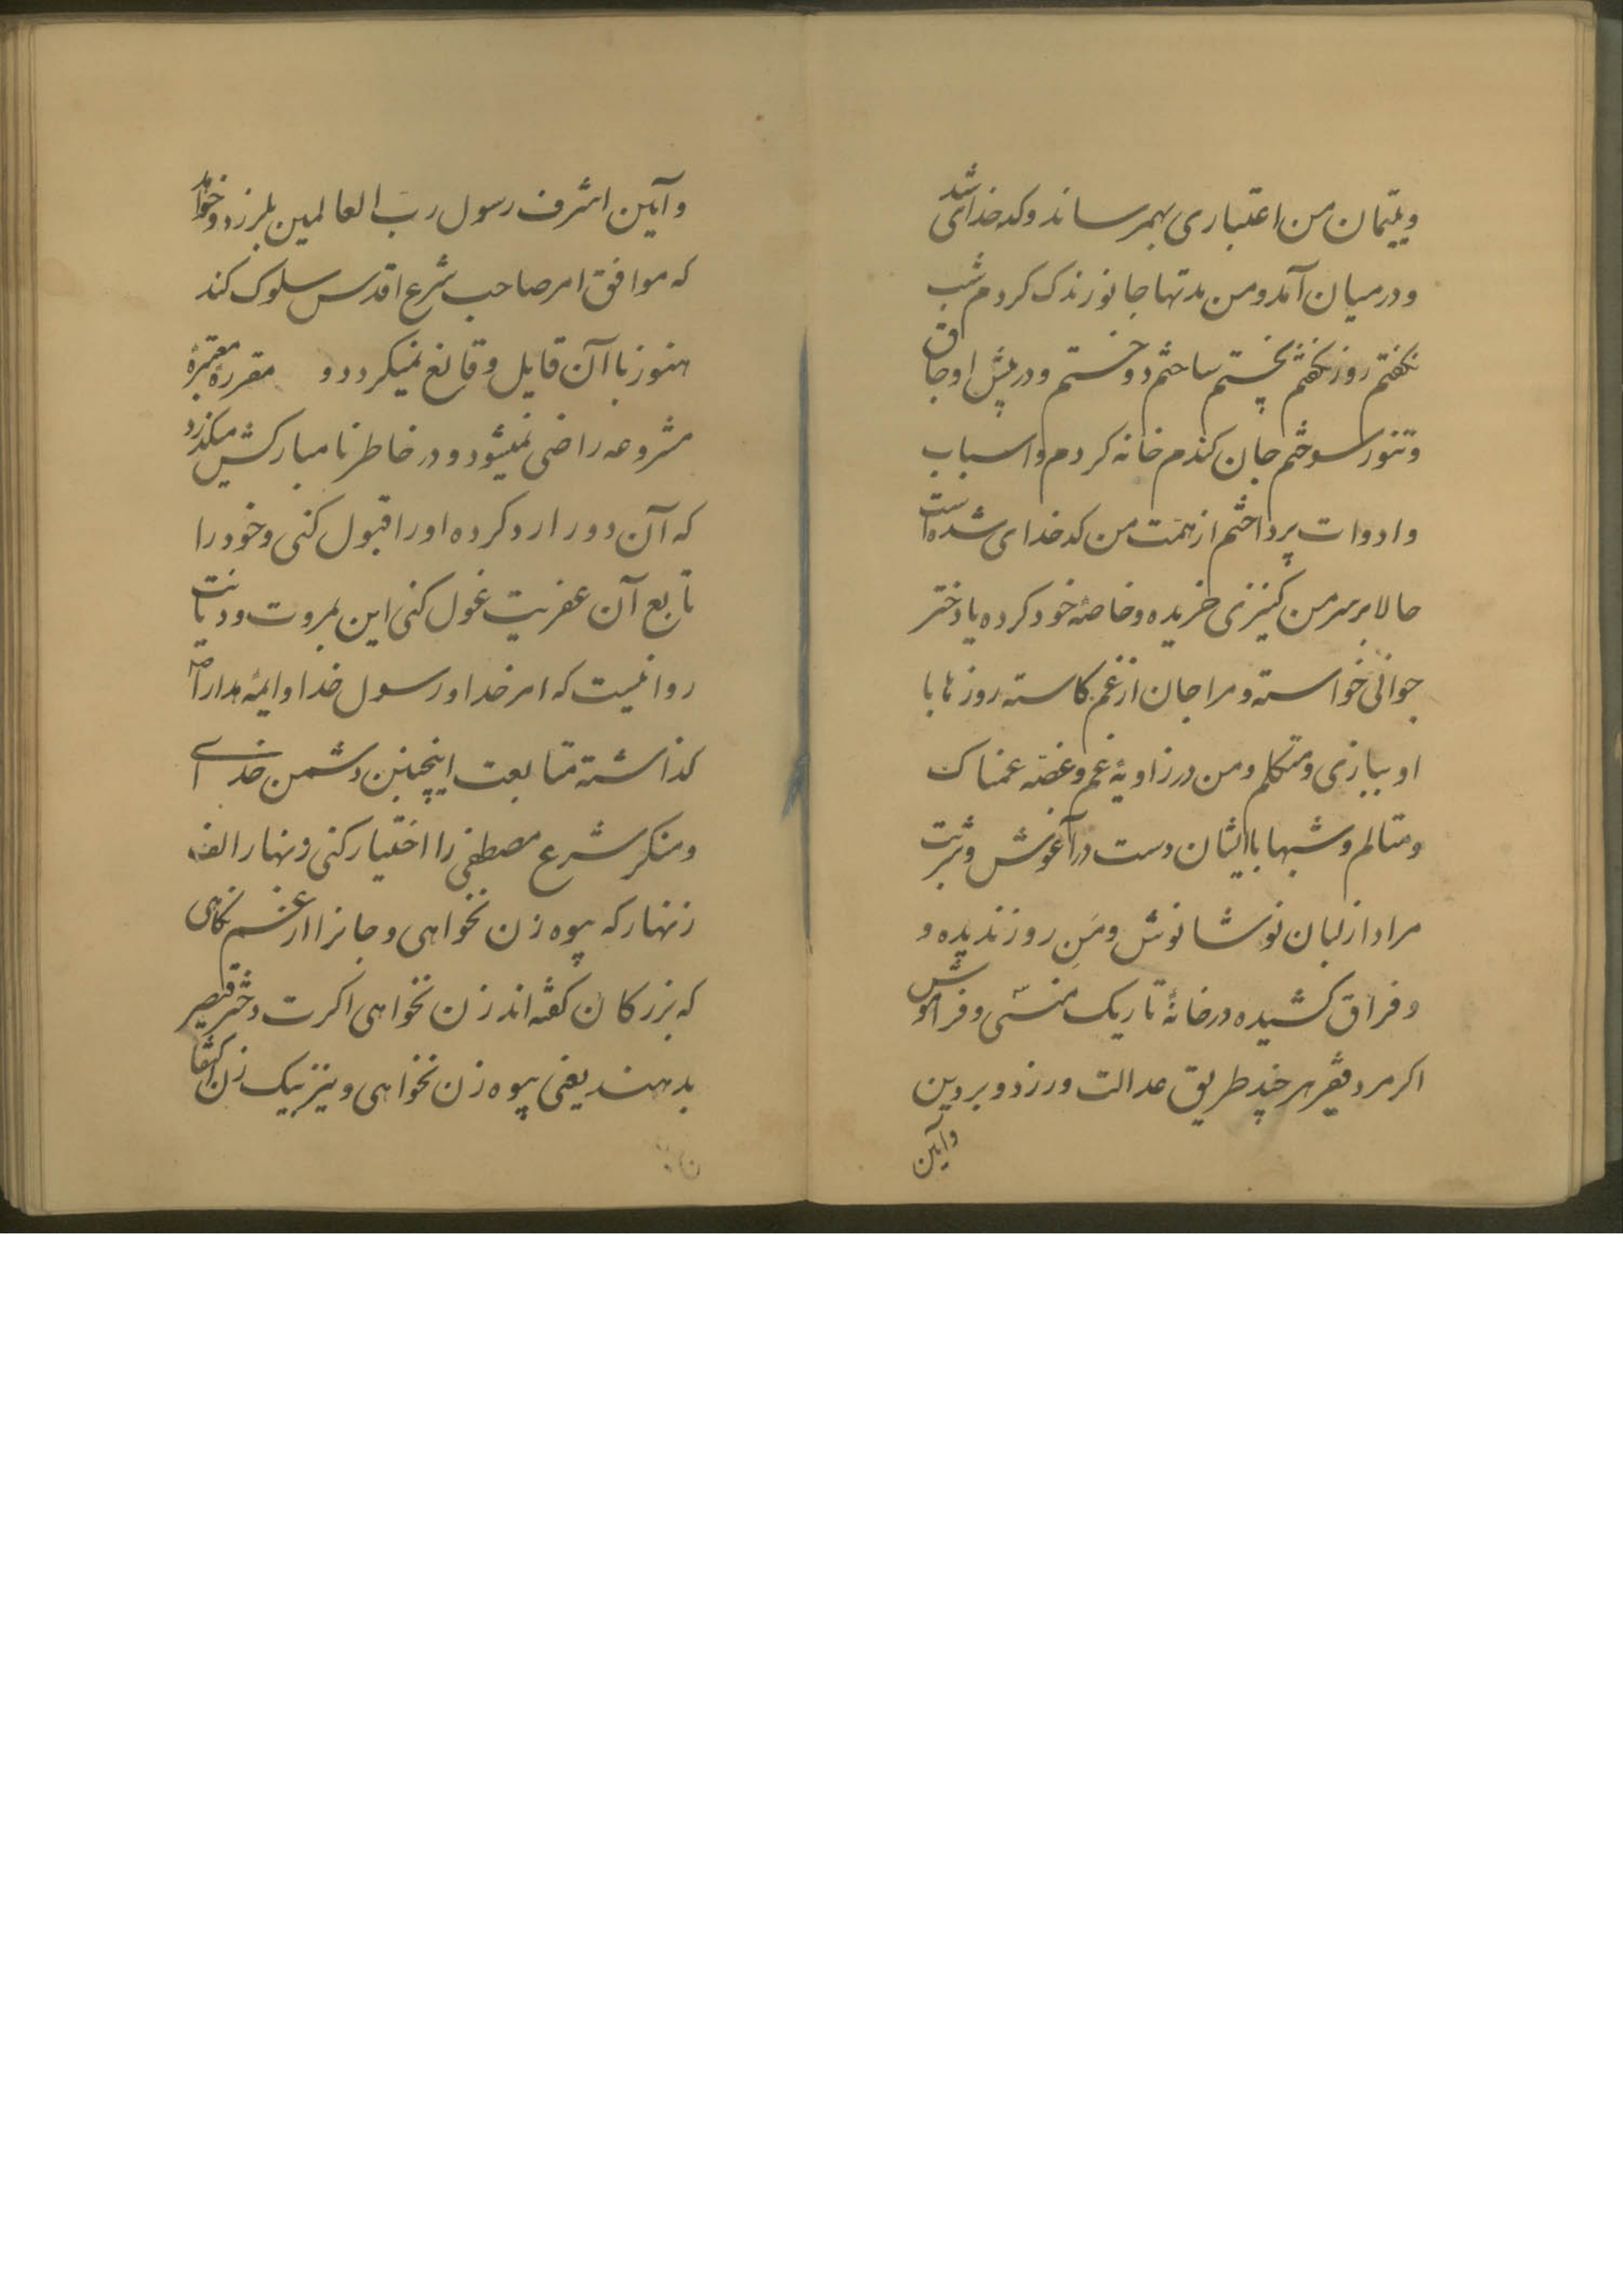 ویتیمان من اعتباری بهمرساند وکدخدای شد
ودرمیان آمد ومن مدتها جانوزندک کردم شب
نکفتم روز نکفتم پختم ساختم دوختم ودرپیش اوجاق
وتنور سوختم جان کندم خانه کردم واسباب
وادوات پرداختم ازهمت من کدخدای شده است
حالا برسر من کنیزی خریده وخاصهٔ خود کرده یا دختر
جوانی خواسته ومرا جان ازغم کاسته روزها با
او ببازی ومتکلم ومن درزاویهٔ غم وغصه غمناک
ومتالم وشبها با ایشان دست درآغوش وشربت
مراد از لبان نوشانوش ومن روزندیده و
وفراق کشیده درخانهٔ تاریک منسی وفراموش
اکر مرد فقیر هرچند طریق عدالت ورزد وبردین
وآیین
وآیین اشرف رسول رب العالمین بلرزد وخواهد
که موافق امر صاحب شرع اقدس سلوک کند
هنوز باآن قایل وقانع نمیکردد و مقررهٔ معتبرهٔ
مشروعه راضی نمیشود ودر خاطر نامبارکش میکذرد
که آن دور ارد کرده اورا قبول کنی وخود را
تابع آن عفریت غول کنی این بمروت ودیانت
روا نیست که امر خدا ورسول خدا وایمهٔ هدا را
کذاشته متابعت اینچنین دشمن خدای
ومنکر شرع مصطفی را اختیار کنی ونهار الف
زنهار که بیوه زن نخواهی وجانرا ازغم نکاهی
که بزرکان کفته اند زن نخواهی اکرت دختر قیصر
بدهند یعنی بیوه زن نخواهی ونیز بیک زن اکتفا